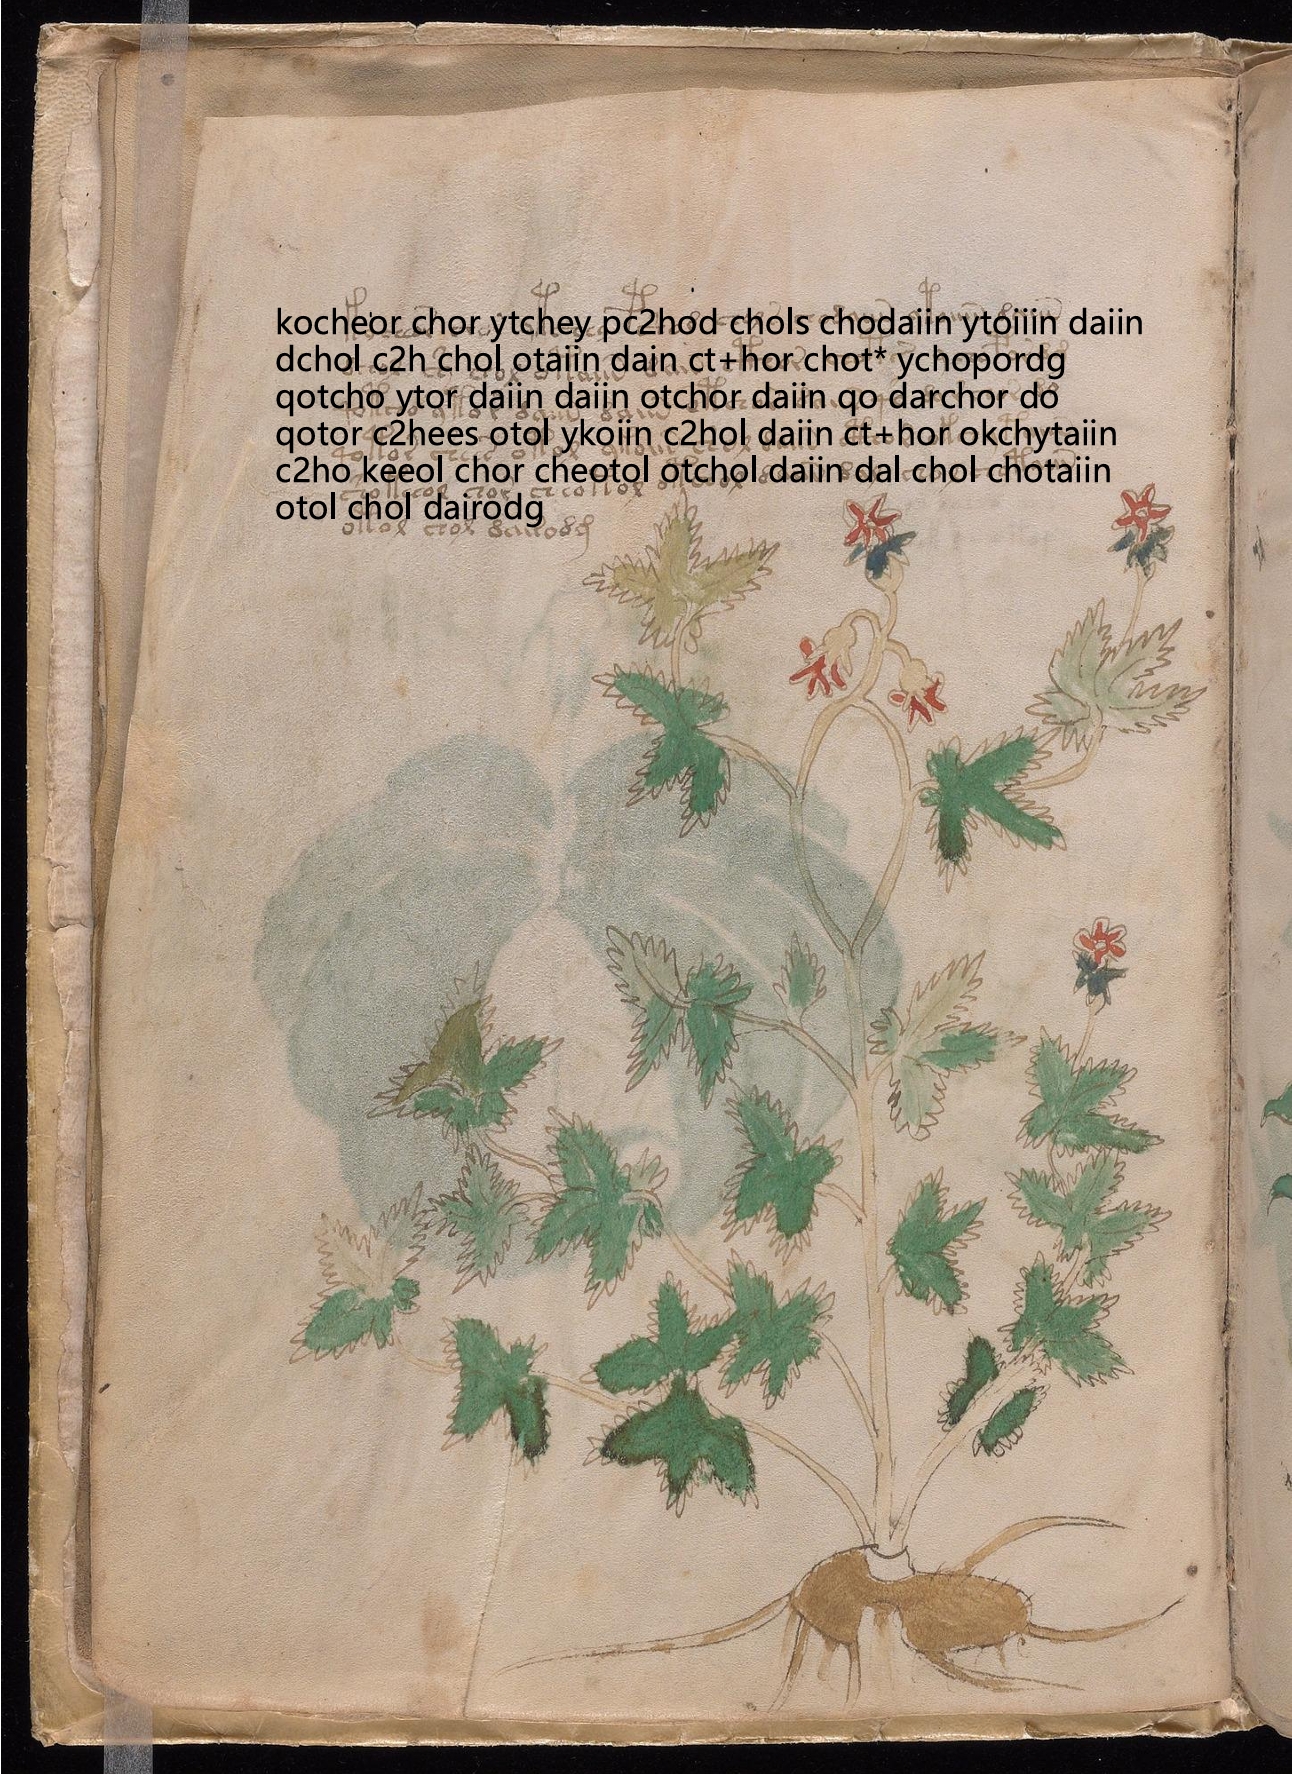 kocheor chor ytchey pc2hod chols chodaiin ytoiiin daiin
dchol c2h chol otaiin dain ct+hor chot* ychopordg
qotcho ytor daiin daiin otchor daiin qo darchor do
qotor c2hees otol ykoiin c2hol daiin ct+hor okchytaiin
c2ho keeol chor cheotol otchol daiin dal chol chotaiin
otol chol dairodg